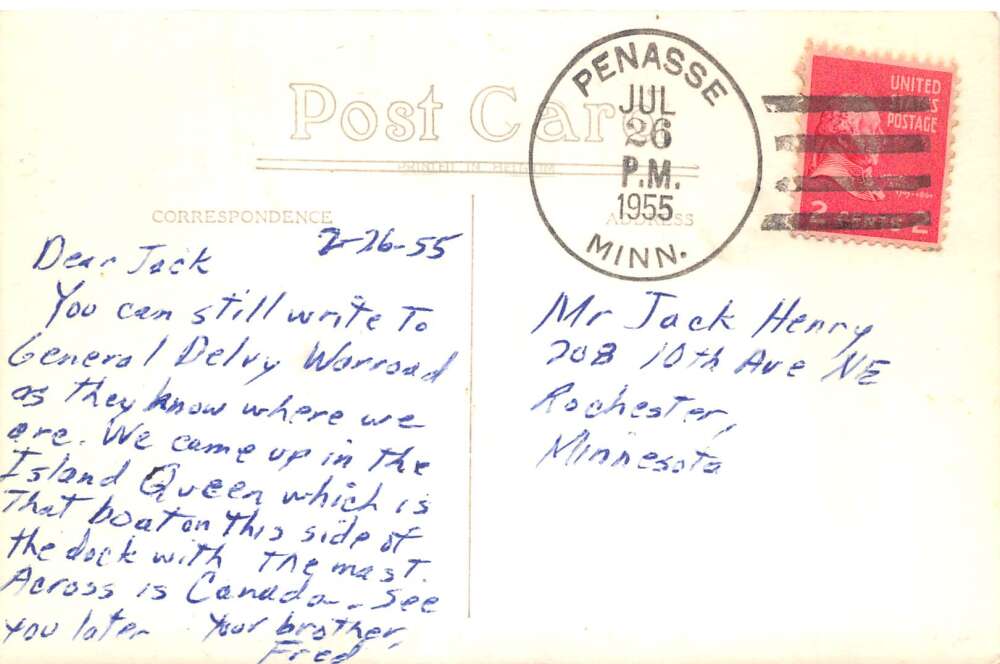 Post Car
CORRESPONDENCE
ADDRESS
PENASSE
JUL
26
P.M.
1955
MINN.
UNITED
STATES
POSTAGE
2 CENTS 2
7-26-55
Dear Jack
You can still write To
General Delvy Warroad
as they know where we
are. We came up in the
Island Queen which is
That boat on this side of
the dock with The mast.
Across is Canada. See
you later Your brother,
Fred
Mr Jack Henry
208 10th Ave NE
Rochester,
Minnesota